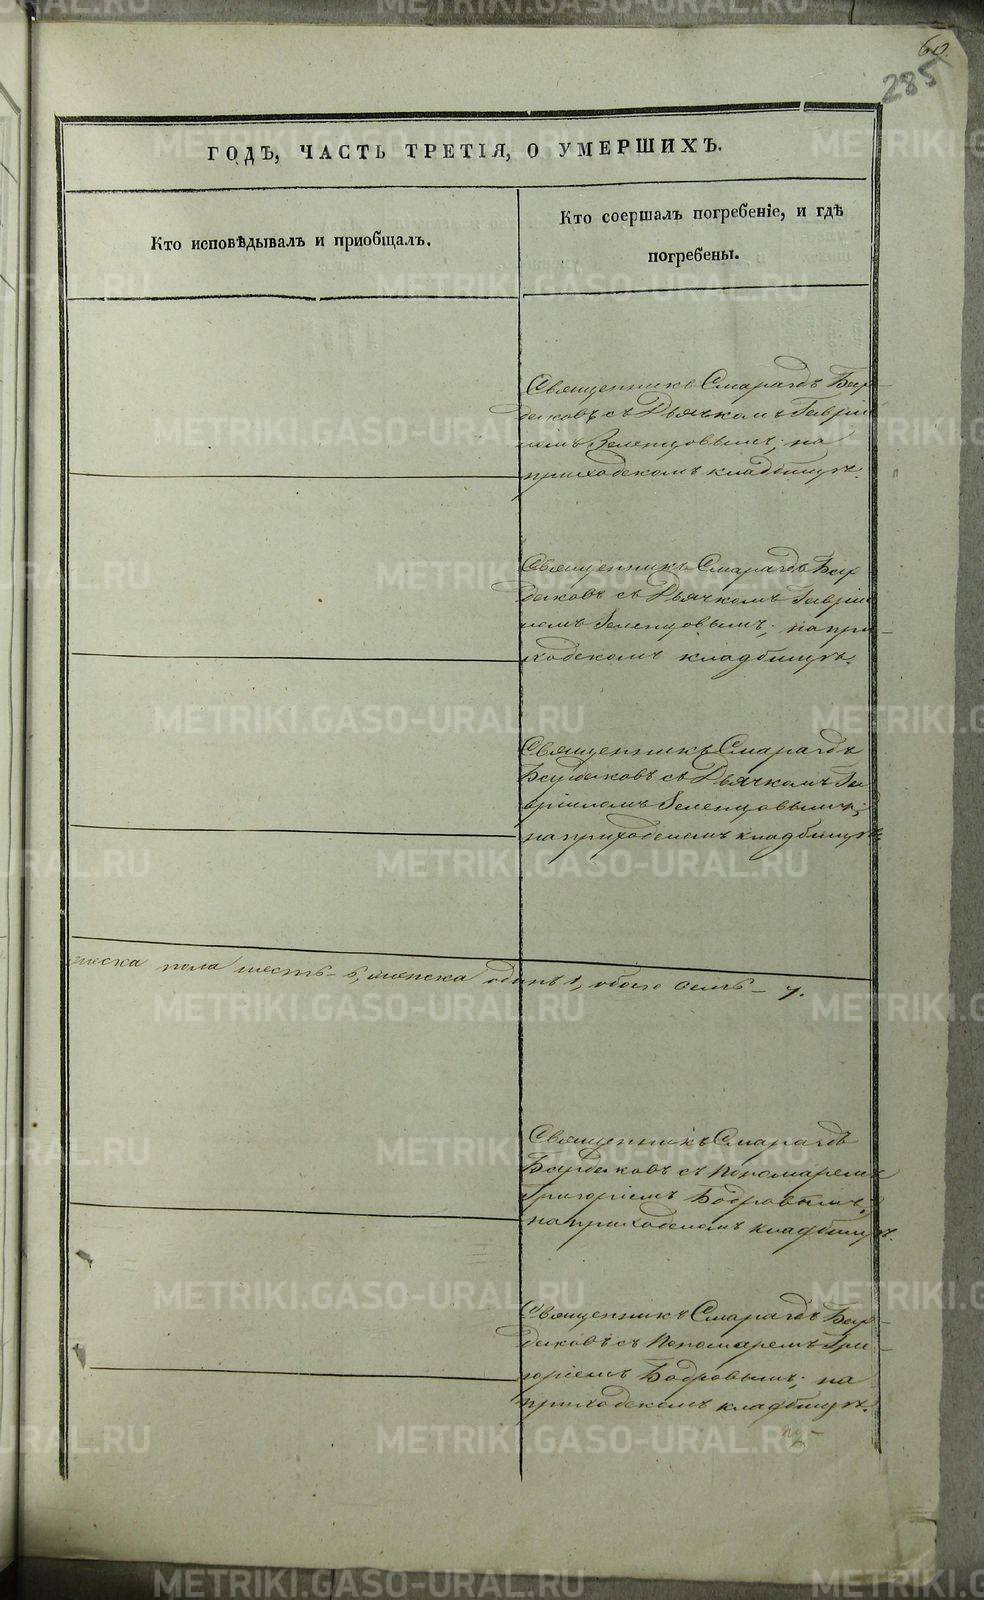 60.
285
ГОДЪ, ЧАСТЬ ТРЕТІЯ, О УМЕРШИХЪ.
Кто исповѣдывалъ и приобщалъ.
Кто соершалъ погребеніе, и гдѣ
погребены.
Священникъ Смарагдъ Бур-
даковъ съ Дьячкомъ Гаврiи
ломъ Зеленцовымъ; на
приходскомъ кладбищѣ.
Священникъ Смарагдъ Бур-
даковъ съ Дьячкомъ Гаврiи
ломъ Зеленцовымъ; на при-
ходскомъ кладбищѣ.
Священникъ Смарагдъ
Бурдаковъ съ Дьячкомъ Га
врiиломъ Зеленцовымъ;
на приходскомъ кладбищѣ
жеска пола шесть - 6, женска одинъ 1, обоего семь - 7.
Священникъ Смарагдъ
Бурдаковъ съ Пономаремъ
Григорiемъ Бодровымъ;
на приходскомъ кладбищѣ.
Священникъ Смарагдъ Бур-
даковъ съ Пономаремъ Гри-
горiемъ Бодровымъ; на
приходскомъ кладбищѣ.
METRIKI.GASO-URAL.RU